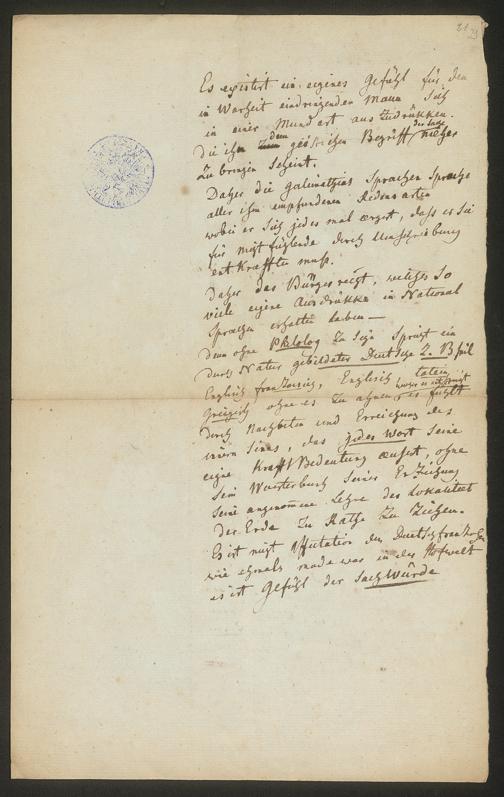 Es existirt ein eigenes Gefühl für den
in Warheit eindringenden Mann Sich
in einer Mundart aus Zudrükken.
der Sache
die ihn dem geistichen Begriff näher
Zu bringen Scheint.
Daher die galimathias Sprachen Sprache
aller ihm empfundenen Redens arten
wobei er Sich jedes mal ærgert, dass er Sie
für nicht fühlende durch Umschreibung
ent Krafften muss.
Daher das Bürgerrecht, welches So
viele eigne Ausdrükke in National
Sprachen erhalten haben —
denn ohne Philolog Zu Sein Spricht ein
durch Natur gebildeter Deutsche Z. B
Englisch französisch, Englisch latein
Griegisch ohne es Zu ahnen es fühlt
durch Nachbeten und Erreichung des
innern Sines, das jedes Wort Seine
eigne Krafft Bedeutung æusert, ohne
Sein Wörterbuch Seiner Erziehung
Seine angenomene Lehre der Lokalitæt
der Erde Zu Rathe Zu Ziehen.
Es ist nicht Affectation des Deutschfranzosen
wie ehmals mode war in der Hofwelt
es ist Gefühl der Sachwürde